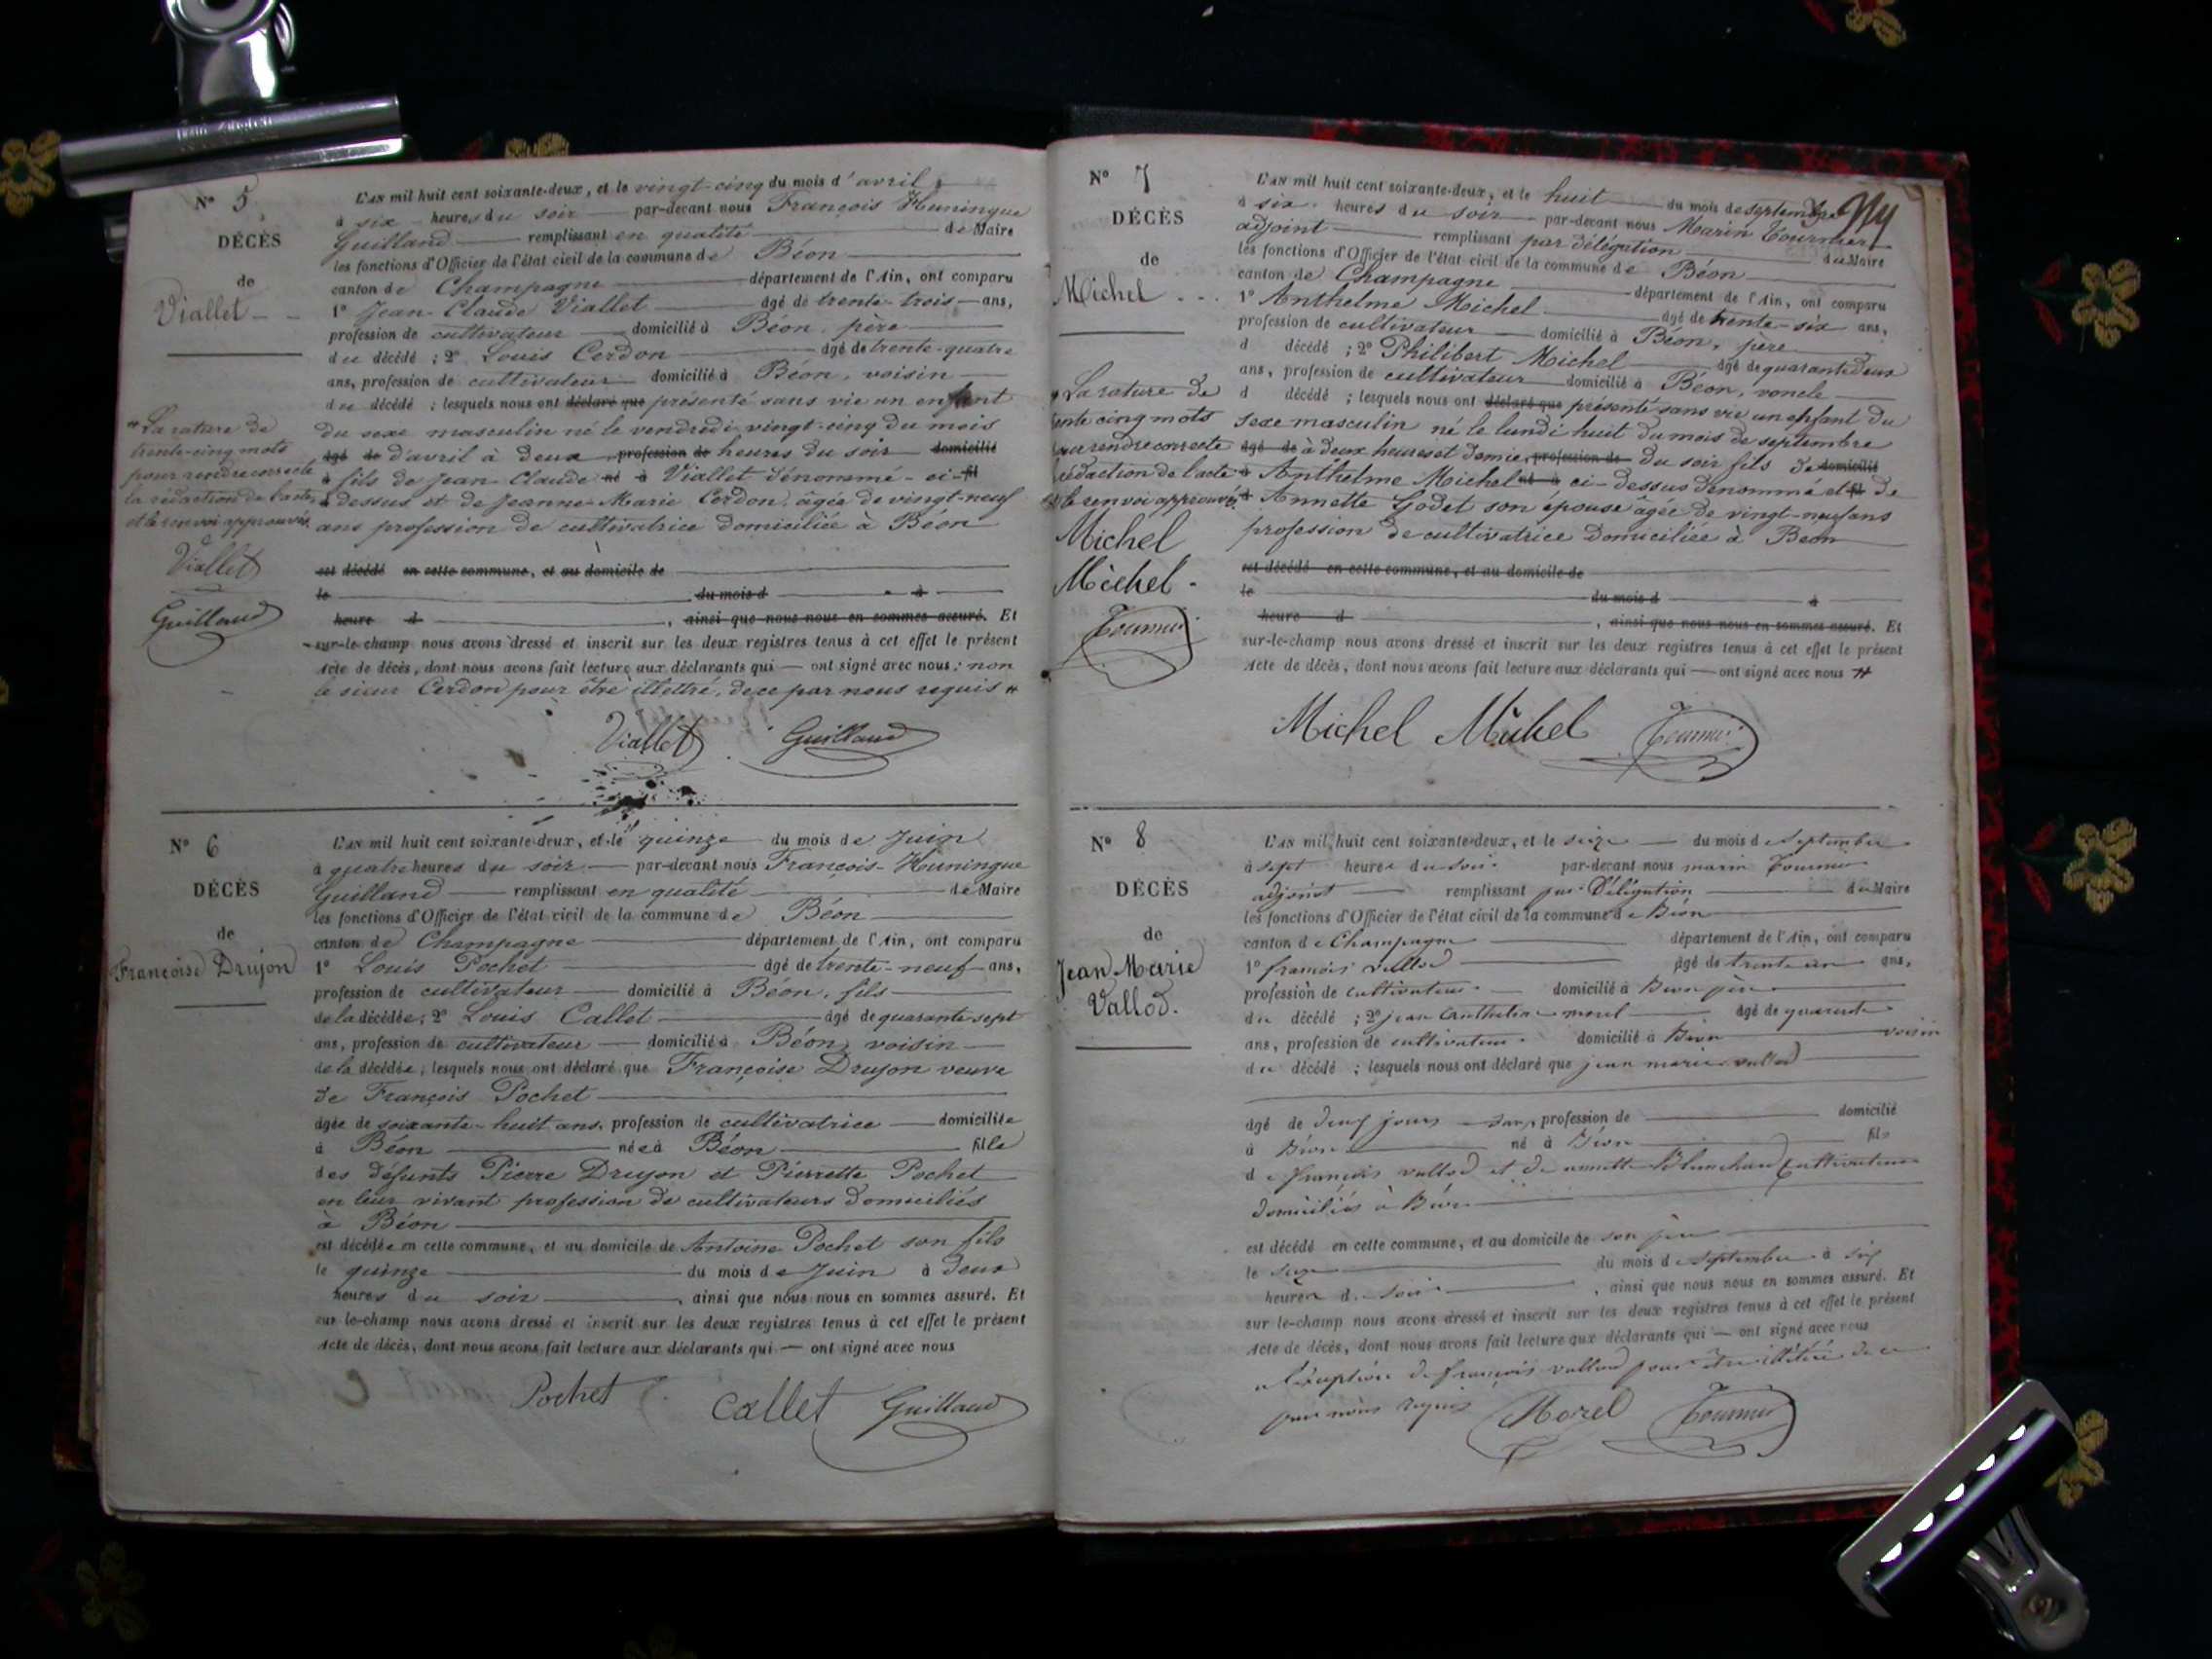 N° 5
DÉCÈS
de
Viallet
L'AN mil huit cent soixante-deux, et le vingt-cinq du mois d'avril
à six heures du soir par-devant nous François Huningue
Guilland remplissant en qualité de Maire
les fonctions d'Officier de l'état civil de la commune de Béon
canton de Champagne département de l'Ain, ont comparu
1° Jean-Claude Viallet âgé de trente-trois ans,
profession de cultivateur domicilié à Béon, père
du décédé ; 2° Louis Cerdon âgé de trente-quatre
ans, profession de cultivateur domicilié à Béon, voisin
du décédé ; lesquels nous ont déclaré que présenté sans vie un enfant
du sexe masculin né le vendredi vingt-cinq du mois
âgé de d'avril à deux profession de heures du soir domicilié
à fils de Jean-Claude né à Viallet dénommé-ci-fil
d dessus et de Jeanne-Marie Cerdon, âgée de vingt-neuf
ans profession de cultivatrice domiciliée à Béon
est décédé en cette commune, et au domicile de
le du mois d à
heure d , ainsi que nous nous en sommes assuré. Et
sur-le-champ nous avons dressé et inscrit sur les deux registres tenus à cet effet le présent
Acte de décès, dont nous avons fait lecture aux déclarants qui — ont signé avec nous ; non
le sieur Cerdon pour être illettré, de ce par nous requis #
Viallet Guilland
# La rature de
trente-cinq mots
pour rendre correcte
la rédaction de l'acte
et le renvoi approuvés.
Viallet
Guilland
N° 6
DÉCÈS
de
Françoise Drujon
L'AN mil huit cent soixante-deux, et le quinze du mois de Juin
à quatre heures du soir par-devant nous François-Huningue
Guilland remplissant en qualité de Maire
les fonctions d'Officier de l'état civil de la commune de Béon
canton de Champagne département de l'Ain, ont comparu
1° Louis Pochet âgé de trente-neuf ans,
profession de cultivateur domicilié à Béon, fils
de la décédée ; 2° Louis Callet âgé de quarante sept
ans, profession de cultivateur domicilié à Béon, voisin
de la décédée ; lesquels nous ont déclaré que Françoise Drujon veuve
de François Pochet
âgée de soixante-huit ans, profession de cultivatrice domiciliée
à Béon née à Béon fille
des défunts Pierre Drujon et Pierrette Pochet
en leur vivant profession de cultivateurs domiciliés
à Béon
est décédée en cette commune, et au domicile de Antoine Pochet son fils
le quinze du mois de Juin à deux
heures du soir , ainsi que nous nous en sommes assuré. Et
sur-le-champ nous avons dressé et inscrit sur les deux registres tenus à cet effet le présent
Acte de décès, dont nous avons fait lecture aux déclarants qui — ont signé avec nous
Pochet Callet Guilland
N° 7
DÉCÈS
de
Michel
L'AN mil huit cent soixante-deux, et le huit du mois de septembre
à six heures du soir par-devant nous Marin Tournier
adjoint remplissant par délégation du Maire
les fonctions d'Officier de l'état civil de la commune de Béon
canton de Champagne département de l'Ain, ont comparu
1° Anthelme Michel âgé de trente-six ans,
profession de cultivateur domicilié à Béon, père
d décédé ; 2° Philibert Michel âgé de quarante deux
ans, profession de cultivateur domicilié à Béon, voncle
d décédé ; lesquels nous ont déclaré que présenté sans vie un enfant du
sexe masculin né le lundi huit du mois de septembre
âgé de à deux heures et demie, profession de du soir fils de domicilié
à Anthelme Michel né à ci-dessus dénommé et fil de
d Annette Godet son épouse âgée de vingt-neuf ans
profession de cultivatrice domiciliée à Béon
est décédé en cette commune, et au domicile de
le du mois d à
heure d , ainsi que nous nous en sommes assuré. Et
sur-le-champ nous avons dressé et inscrit sur les deux registres tenus à cet effet le présent
Acte de décès, dont nous avons fait lecture aux déclarants qui — ont signé avec nous #
Michel Michel Tournier
# La rature de
trente cinq mots
pour rendre correcte
la rédaction de l'acte
et le renvoi approuvés.
Michel
Michel
Tournier
N° 8
DÉCÈS
de
Jean Marie
Vallod.
L'AN mil huit cent soixante-deux, et le seize du mois de septembre
à sept heures du soir par-devant nous marin Tournier
adjoint remplissant par Délégation du Maire
les fonctions d'Officier de l'état civil de la commune de Béon
canton de Champagne département de l'Ain, ont comparu
1° françois vallod âgé de trente un ans,
profession de cultivateur domicilié à Béon père
du décédé ; 2° jean anthelme morel âgé de quarante
ans, profession de cultivateur domicilié à Béon voisin
du décédé ; lesquels nous ont déclaré que jean marie vallod
âgé de deux jours sans profession de domicilié
à Béon né à Béon fils
de françois vallod et de annette Blanchard cultivateurs
domiciliés à Béon
est décédé en cette commune, et au domicile de son père
le seize du mois de septembre à six
heures du soir , ainsi que nous nous en sommes assuré. Et
sur-le-champ nous avons dressé et inscrit sur les deux registres tenus à cet effet le présent
Acte de décès, dont nous avons fait lecture aux déclarants qui — ont signé avec nous
à l'éxception de françois vallod pour être illétéré de ce
par nous requis Morel Tournier